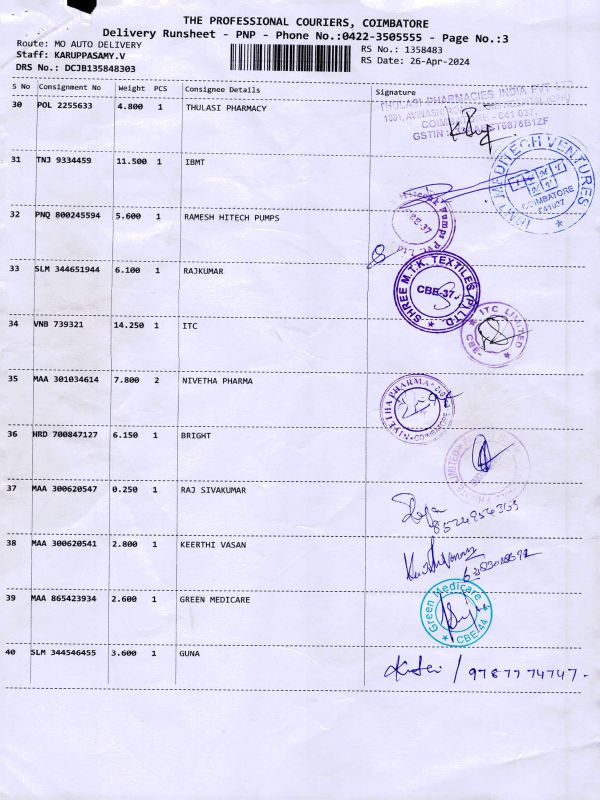 THE PROFESSIONAL COURIERS, COIMBATORE
Delivery Runsheet - PNP - Phone No.:0422-3505555 - Page No.:3
Route: MO AUTO DELIVERY
Staff: KARUPPASAMY.V
DRS No.: DCJB135848303
RS No.: 1358483
RS Date: 26-Apr-2024
S No Consignment No Weight PCS Consignee Details Signature
30 POL 2255633 4.800 1 THULASI PHARMACY
THULASI PHARMACIES INDIA PVT LTD
COIMBATORE - 641 037.
31 TNJ 9334459 11.500 1 IBMT
MEDITECH VENTURES
COIMBATORE
641037
32 PNQ 800245594 5.600 1 RAMESH HITECH PUMPS
Hitech Pumps Pvt. Ltd
CBE-37
33 SLM 344651944 6.100 1 RAJKUMAR
SHREE M.T.K. TEXTILES (P) LTD.
CBE-37
34 VNB 739321 14.250 1 ITC
ITC LIMITED
CBE-
35 MAA 301034614 7.800 2 NIVETHA PHARMA
NIVETHA PHARMA
COIMBATORE
36 HRD 700847127 6.150 1 BRIGHT
PRIVATE LIMITED
37 MAA 300620547 0.250 1 RAJ SIVAKUMAR
38 MAA 300620541 2.800 1 KEERTHI VASAN
39 MAA 865423934 2.600 1 GREEN MEDICARE
Green Medicare
CBE-44
40 SLM 344546455 3.600 1 GUNA
/ 9787774747.